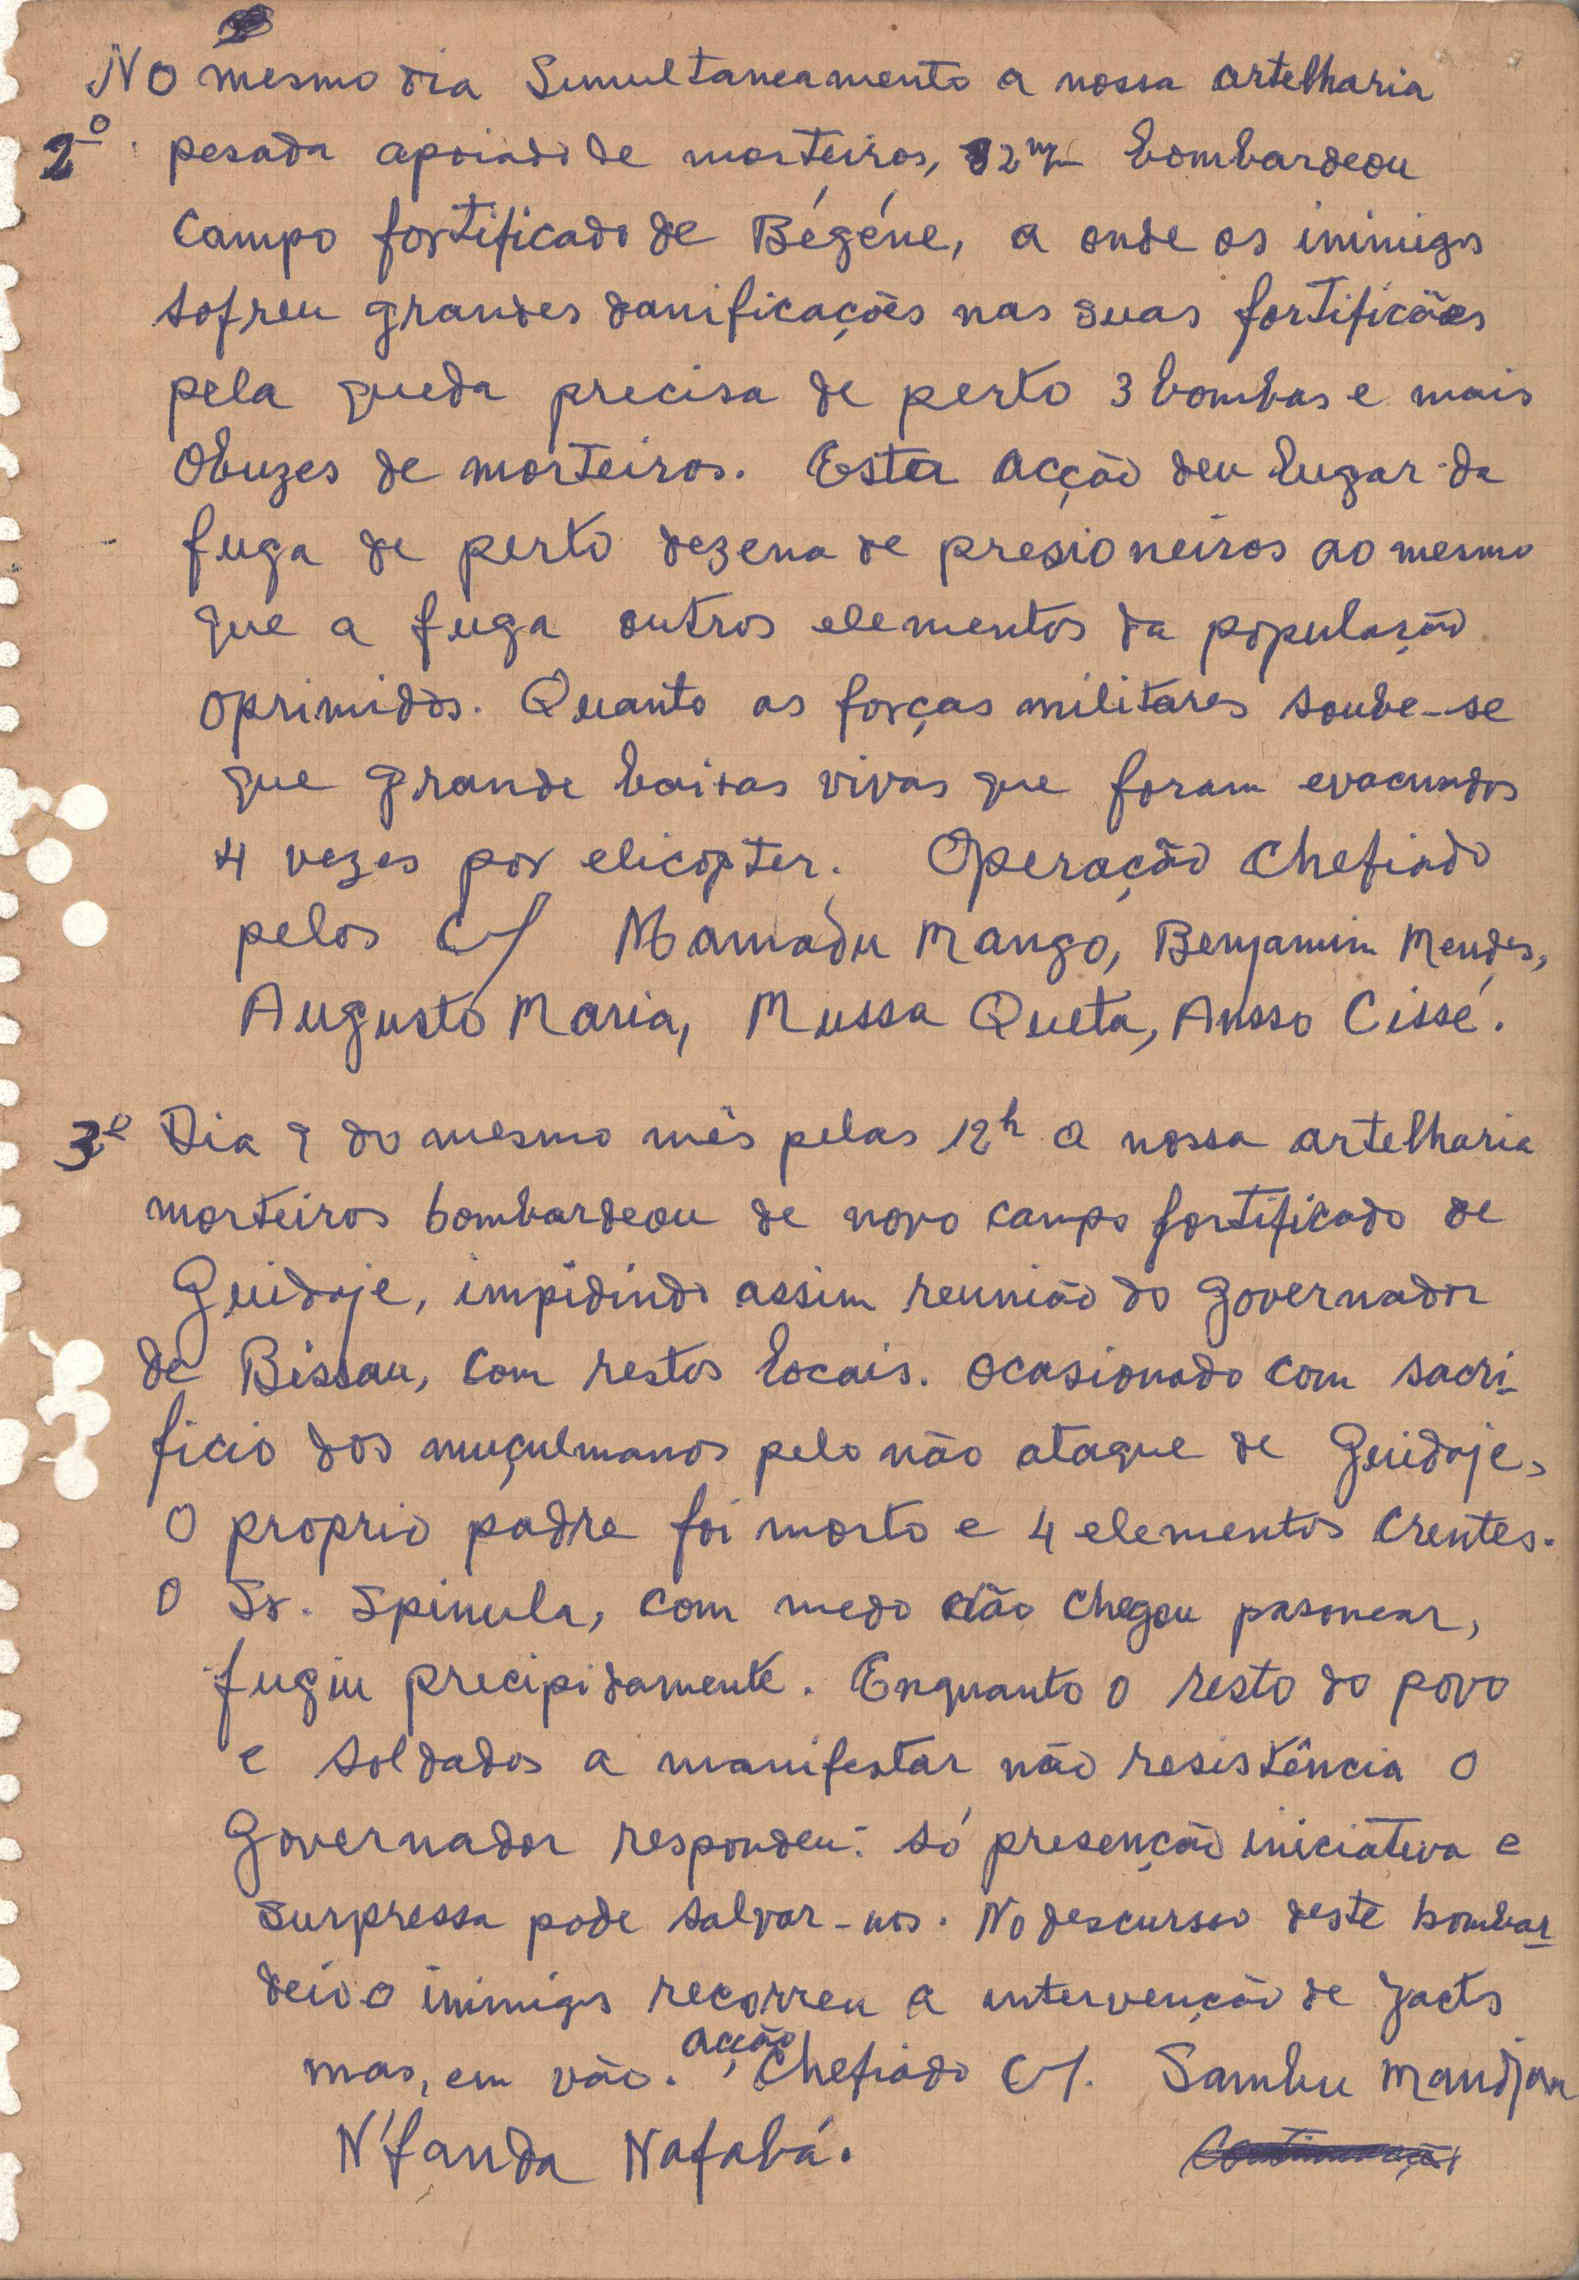 No mesmo dia Simultaneamento a nossa artelharia
2º pesada apoiado de morteiros, 82m/m bombardeou
Campo fortificado de Bégéne, a onde os inimigos
sofreu grandes danificações nas suas fortificões
pela queda precisa de perto 3 bombas e mais
Obuzes de morteiros. Esta acção deu lugar da
fuga de perto dezena de presioneiros ao mesmo
que a fuga outros elementos da população
oprimidos. Quanto as forças militares soube-se
que grande baixas vivas que foram evacuados
4 vezes por elicopter. Operação Chefiado
pelos C/ Mamadu Mango, Benjamim Mendes,
Augusto Maria, Mussa Queta, Ansso Cissé.
3º Dia 9 do mesmo mês pelas 12h a nossa artelharia
morteiros bombardeou de novo campo fortificado de
Guidaje, impidindo assim reunião do Governador
de Bissau, com restos locais. Ocasionado com sacri-
ficio dos muçulmanos pelo não ataque de Guidaje,
O proprio padre foi morto e 4 elementos Crentes.
O Sr. Spinula, com medo não chegou pasonear,
fugiu precipidamente. Enquanto o resto do povo
e soldados a manifestar não resistência o
Governador respondeu: só presenção iniciativa e
surpressa pode salvar-nos. No descurso deste bombar-
deio o inimigos recorreu a intervenção de jacts
mas, em vão. acção Chefiado C/. Sambu Mandjan
N'fanda Nafabá.